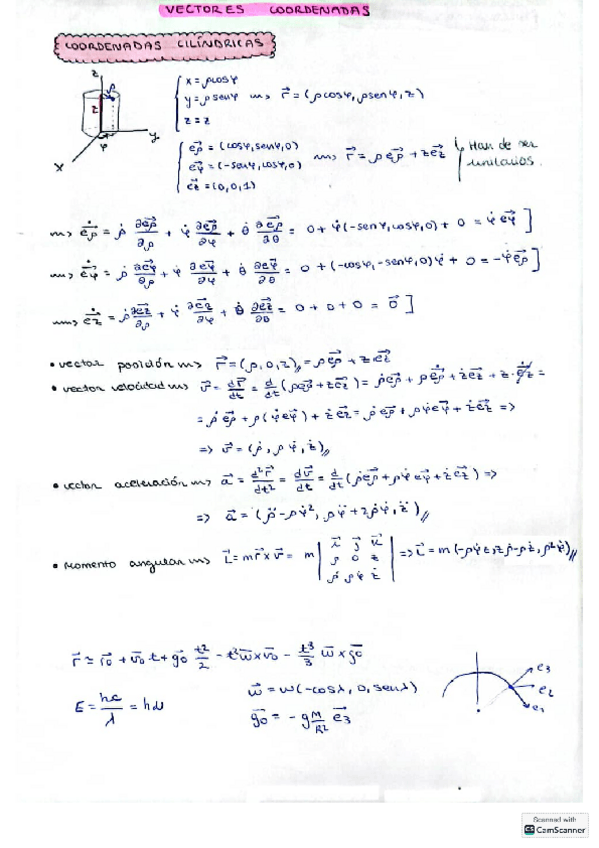 VECTORES COORDENADAS
COORDENADAS CILÍNDRICAS
z
ρ
z
y
φ
x
x = ρcosφ
y = ρsenφ ⇝ r⃗ = (ρcosφ, ρsenφ, z)
z = z
e⃗ρ = (cosφ, senφ, 0)
e⃗φ = (-senφ, cosφ, 0) ⇝ r⃗ = ρ e⃗ρ + z e⃗z
e⃗z = (0, 0, 1)
Han de ser
unitarios.
⇝ ė⃗ρ = ρ̇ ∂e⃗ρ/∂ρ + φ̇ ∂e⃗ρ/∂φ + θ̇ ∂e⃗ρ/∂θ = 0 + φ̇(-senφ, cosφ, 0) + 0 = φ̇ e⃗φ ]
⇝ ė⃗φ = ρ̇ ∂e⃗φ/∂ρ + φ̇ ∂e⃗φ/∂φ + θ̇ ∂e⃗φ/∂θ = 0 + (-cosφ, -senφ, 0)φ̇ + 0 = -φ̇ e⃗ρ ]
⇝ ė⃗z = ρ̇ ∂e⃗z/∂ρ + φ̇ ∂e⃗z/∂φ + θ̇ ∂e⃗z/∂θ = 0 + 0 + 0 = 0⃗ ]
• vector posición ⇝ r⃗ = (ρ, 0, z) // = ρ e⃗ρ + z e⃗z
• vector velocidad ⇝ v⃗ = dr⃗/dt = d/dt (ρ e⃗ρ + z e⃗z) = ρ̇ e⃗ρ + ρ ė⃗ρ + ż e⃗z + z · ė⃗z =
= ρ̇ e⃗ρ + ρ(φ̇ e⃗φ) + ż e⃗z = ρ̇ e⃗ρ + ρφ̇ e⃗φ + ż e⃗z =>
=> v⃗ = (ρ̇, ρφ̇, ż) //
• vector aceleración ⇝ a⃗ = d²r⃗/dt² = dv⃗/dt = d/dt (ρ̇ e⃗ρ + ρφ̇ e⃗φ + ż e⃗z) =>
=> a⃗ = (ρ̈ - ρφ̇², ρφ̈ + 2ρ̇φ̇, z̈) //
• Momento angular ⇝ L⃗ = m r⃗ x v⃗ = m | i⃗ j⃗ k⃗ | ρ 0 z | ρ̇ ρφ̇ ż | => L⃗ = m(-ρφ̇z, zρ̇ - ρż, ρ²φ̇) //
r⃗ ≃ r⃗0 + v⃗0 t + g⃗0 t²/2 - t² ω⃗ x v⃗0 - t³/3 ω⃗ x g⃗0
E = hc/λ = hν
ω⃗ = ω(-cosλ, 0, senλ)
g⃗0 = -g M/R² e⃗3
e3
e2
e1
Scanned with
CS CamScanner